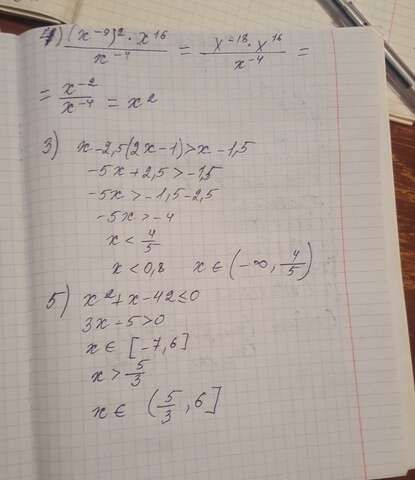 4) \frac{(x^{-9})^2 · x^{16}}{x^{-4}} = \frac{x^{-18} · x^{16}}{x^{-4}} =
= \frac{x^{-2}}{x^{-4}} = x^2
3) x-2,5(2x-1)>x-1,5
-5x+2,5>-1,5
-5x>-1,5-2,5
-5x>-4
x<\frac{4}{5}
x<0,8 x∈(-∞, \frac{4}{5})
5) x^2+x-42≤0
3x-5>0
x∈[-7,6]
x>\frac{5}{3}
x∈(\frac{5}{3}, 6]